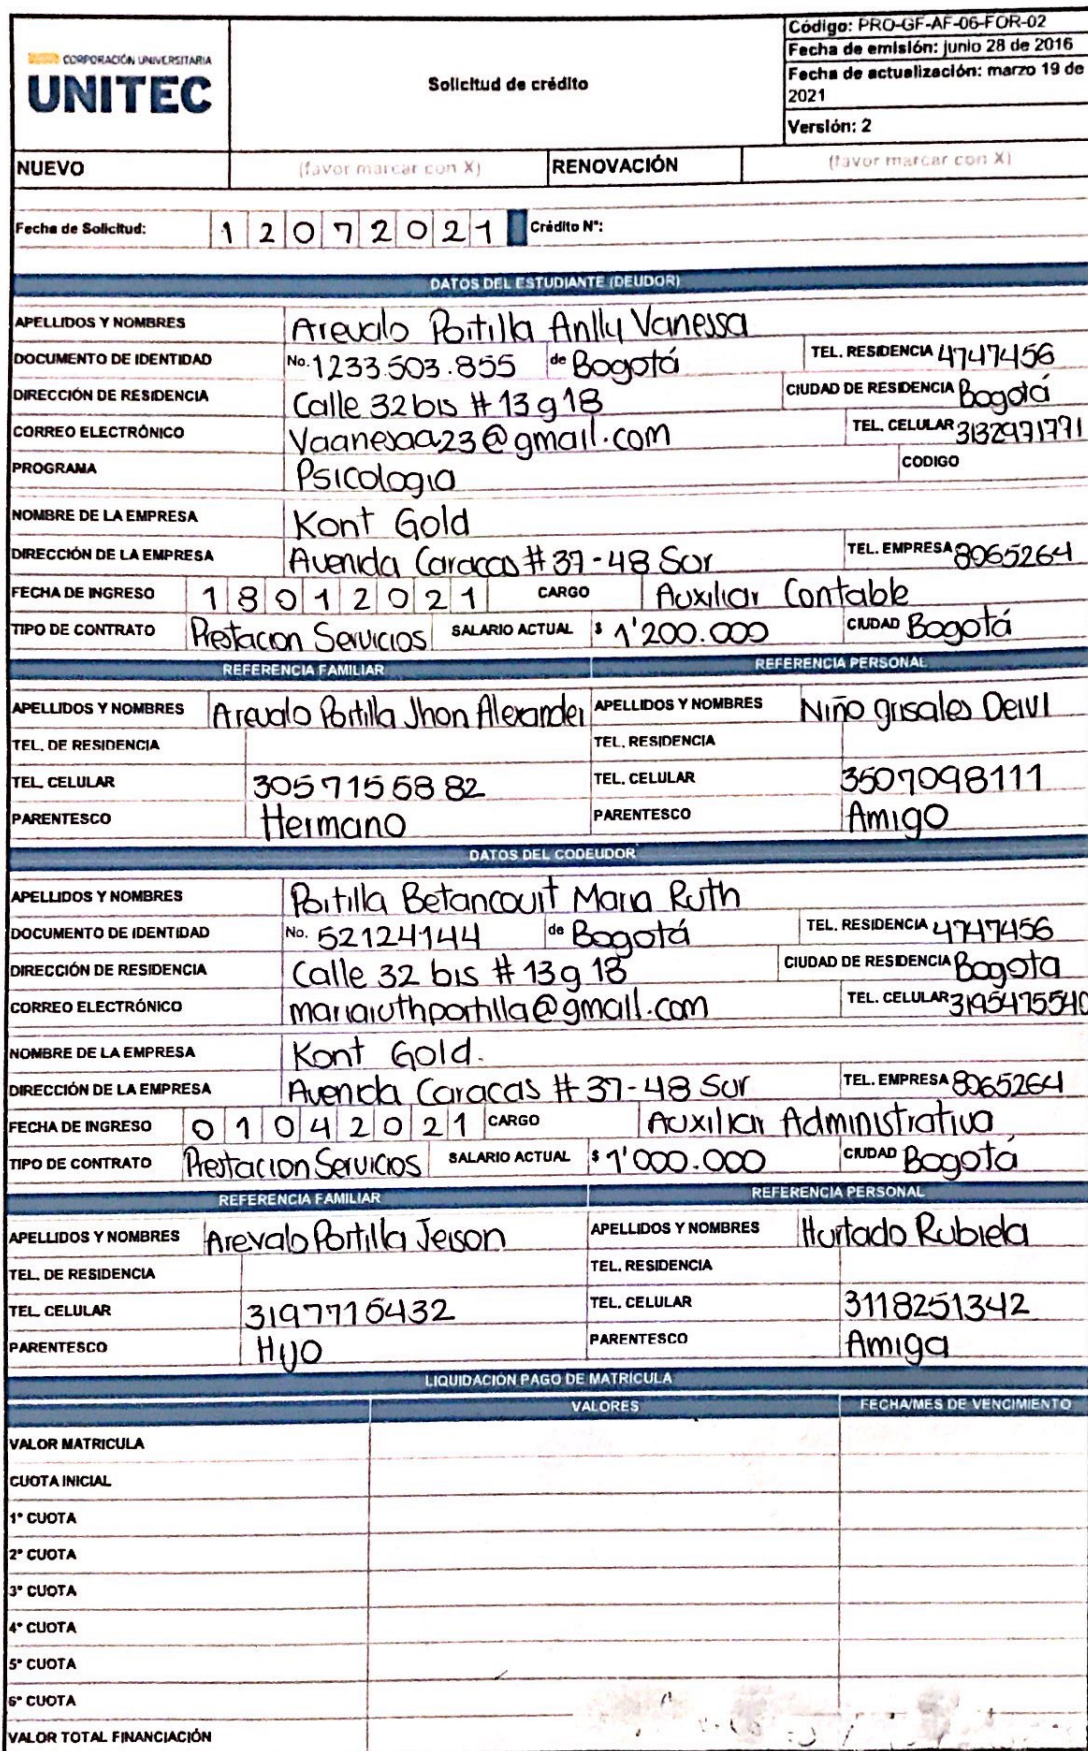 CORPORACIÓN UNIVERSITARIA
UNITEC
Solicitud de crédito
Código: PRO-GF-AF-06-FOR-02
Fecha de emisión: junio 28 de 2016
Fecha de actualización: marzo 19 de 2021
Versión: 2
NUEVO (favor marcar con X) RENOVACIÓN (favor marcar con X)
Fecha de Solicitud: 1 2 0 7 2 0 2 1 Crédito N°:
DATOS DEL ESTUDIANTE (DEUDOR)
APELLIDOS Y NOMBRES Arevalo Portilla Anlly Vanessa
DOCUMENTO DE IDENTIDAD No. 1233.503.855 de Bogotá TEL. RESIDENCIA 4747456
DIRECCIÓN DE RESIDENCIA Calle 32 bis # 13 g 18 CIUDAD DE RESIDENCIA Bogotá
CORREO ELECTRÓNICO Vaanesaa23@gmail.com TEL. CELULAR 3132971771
PROGRAMA Psicologia CODIGO
NOMBRE DE LA EMPRESA Kont Gold
DIRECCIÓN DE LA EMPRESA Avenida Caracas # 37-48 Sur TEL. EMPRESA 8065264
FECHA DE INGRESO 1 8 0 1 2 0 2 1 CARGO Auxiliar Contable
TIPO DE CONTRATO Prestacion Servicios SALARIO ACTUAL $ 1'200.000 CIUDAD Bogotá
REFERENCIA FAMILIAR REFERENCIA PERSONAL
APELLIDOS Y NOMBRES Arevalo Portilla Jhon Alexander APELLIDOS Y NOMBRES Niño grisales Deivi
TEL. DE RESIDENCIA TEL. RESIDENCIA
TEL. CELULAR 3057155882 TEL. CELULAR 3507098111
PARENTESCO Hermano PARENTESCO Amigo
DATOS DEL CODEUDOR
APELLIDOS Y NOMBRES Portilla Betancourt Maria Ruth
DOCUMENTO DE IDENTIDAD No. 52124144 de Bogotá TEL. RESIDENCIA 4747456
DIRECCIÓN DE RESIDENCIA Calle 32 bis # 13 g 18 CIUDAD DE RESIDENCIA Bogota
CORREO ELECTRÓNICO mariaruthportilla@gmail.com TEL. CELULAR 3195475540
NOMBRE DE LA EMPRESA Kont Gold.
DIRECCIÓN DE LA EMPRESA Avenida Caracas # 37-48 Sur TEL. EMPRESA 8065264
FECHA DE INGRESO 0 1 0 4 2 0 2 1 CARGO Auxiliar Administrativa
TIPO DE CONTRATO Prestacion Servicios SALARIO ACTUAL $ 1'000.000 CIUDAD Bogotá
REFERENCIA FAMILIAR REFERENCIA PERSONAL
APELLIDOS Y NOMBRES Arevalo Portilla Jeison APELLIDOS Y NOMBRES Hurtado Rubiela
TEL. DE RESIDENCIA TEL. RESIDENCIA
TEL. CELULAR 3197716432 TEL. CELULAR 3118251342
PARENTESCO Hijo PARENTESCO Amiga
LIQUIDACIÓN PAGO DE MATRICULA
VALORES FECHA/MES DE VENCIMIENTO
VALOR MATRICULA
CUOTA INICIAL
1° CUOTA
2° CUOTA
3° CUOTA
4° CUOTA
5° CUOTA
6° CUOTA
VALOR TOTAL FINANCIACIÓN